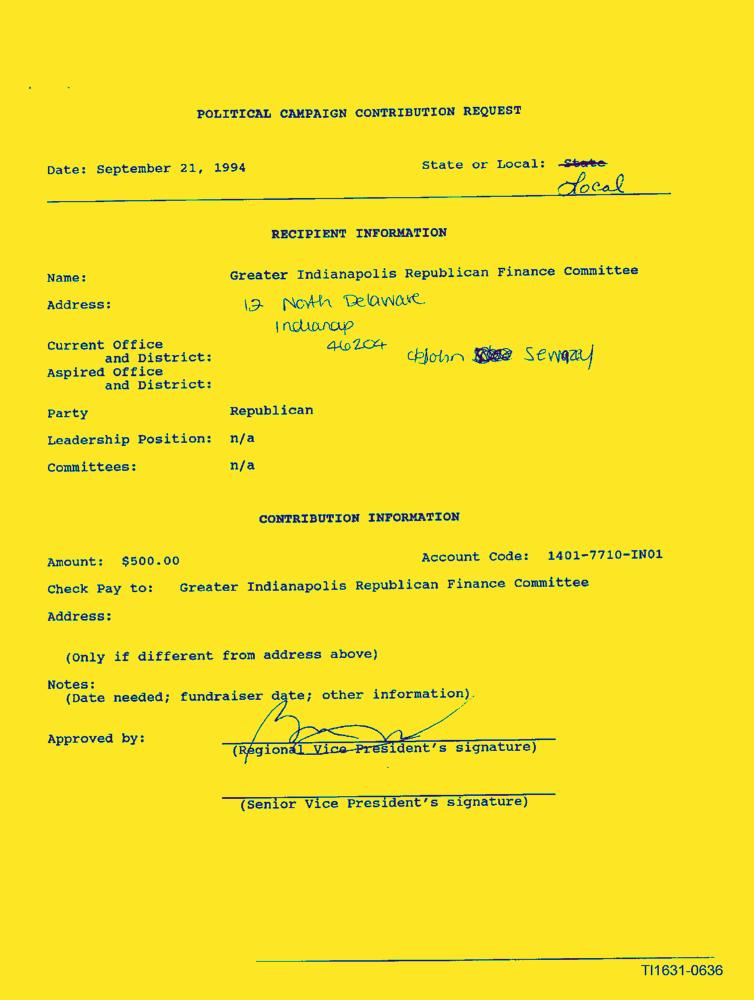 POLITICAL CAMPAIGN CONTRIBUTION REQUEST
Date: September 21, 1994 State or Local: State
Local
RECIPIENT INFORMATION
Name: Greater Indianapolis Republican Finance Committee
Address: 12 North Delaware
Indianap
46204
Current Office
and District: John
Aspired Office
and District:
Party Republican
Leadership Position: n/a
Committees: n/a
CONTRIBUTION INFORMATION
Amount: $500.00 Account Code: 1401-7710-IN01
Check Pay to: Greater Indianapolis Republican Finance Committee
Address:
(Only if different from address above)
Notes:
(Date needed; fundraiser date; other information).
Approved by:
(Regional Vice President's signature)
(Senior Vice President's signature)
TI1631-0636